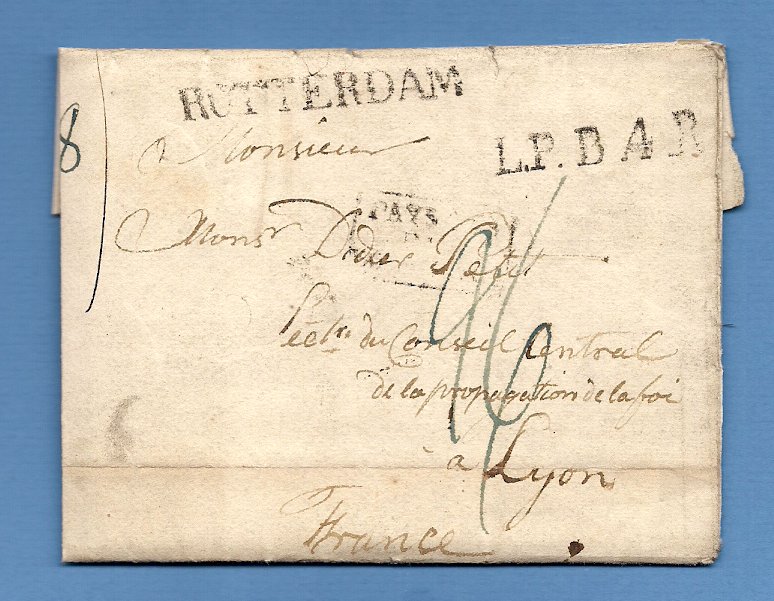 ROTTERDAM
8
L.P.B.A.R
a Monsieur
PAYS
Monsr Didier Petit
Secre du Conseil Central
de la propagation de la foi
à Lyon
France